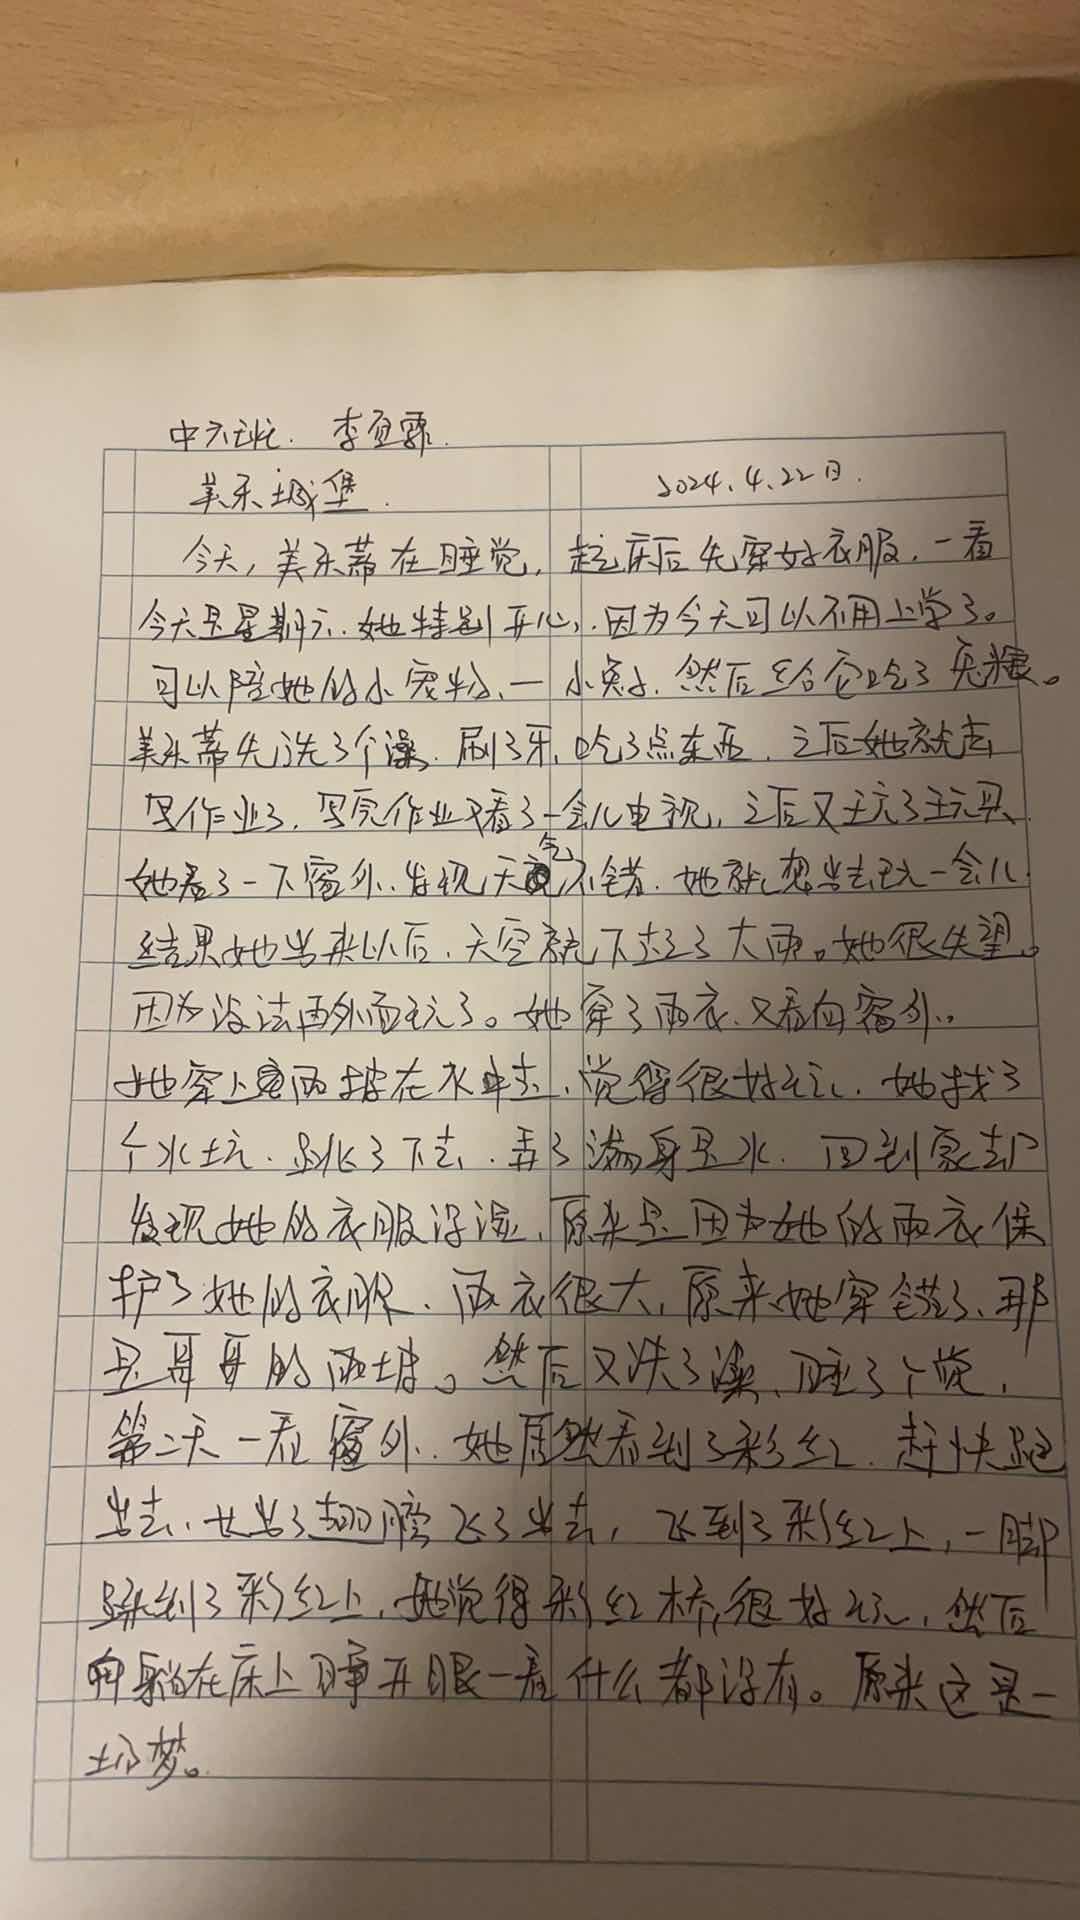 中六班. 李宜霖.
美乐城堡. 2024.4.22日.
今天,美乐蒂在睡觉,起床后先穿好衣服,一看
今天是星期六.她特别开心,因为今天可以不用上学了。
可以陪她的小宠物,一小兔,然后给它吃了兔粮。
美乐蒂先洗了个澡.刷了牙,吃了点东西,之后她就去
写作业了,写完作业又看了一会儿电视,之后又玩了玩具.
她看了一下窗外.发现天气不错.她就想出去玩一会儿.
结果她出来以后.天空就下起了大雨。她很失望。
因为没法再外面玩了。她穿了雨衣.又看向窗外.
她穿上雨披在水中走,觉得很好玩.她找了
个水坑.跳了下去.弄了满身是水.回到家却
发现她的衣服没湿,原来是因为她的雨衣保
护了她的衣服.雨衣很大,原来她穿错了,那
是哥哥的雨披。然后又洗了澡,睡了个觉,
第二天一看窗外.她居然看到了彩红.赶快跑
出去,长出了翅膀飞了出去,飞到了彩红上,一脚
踩到了彩红上,她觉得彩红桥很好玩,然后
躺在床上睁开眼一看什么都没有。原来这是一
场梦。